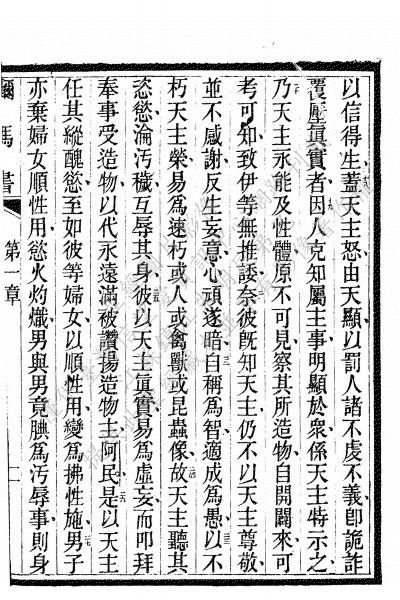 以信得生蓋天主怒由天顯以罰人諸不虔不義卽詭詐
覆壓眞實者因人克知屬主事明顯於衆係天主特示之
乃天主永能及性體原不可見察其所造物自開闢來可
考可知致伊等無推諉奈彼旣知天主仍不以天主尊敬
並不感謝反生妄意心頑遂暗自稱爲智適成爲愚以不
朽天主榮易爲速朽或人或禽獸或昆蟲像故天主聽其
恣慾淪汚穢互辱其身彼以天主眞實易爲虛妄而叩拜
奉事受造物以代永遠滿被讚揚造物主阿民是以天主
任其縱醜慾至如彼等婦女以順性用變爲拂性施男子
亦棄婦女順性用慾火灼熾男與男竟腆爲汚辱事則身
羅馬書
第一章
二